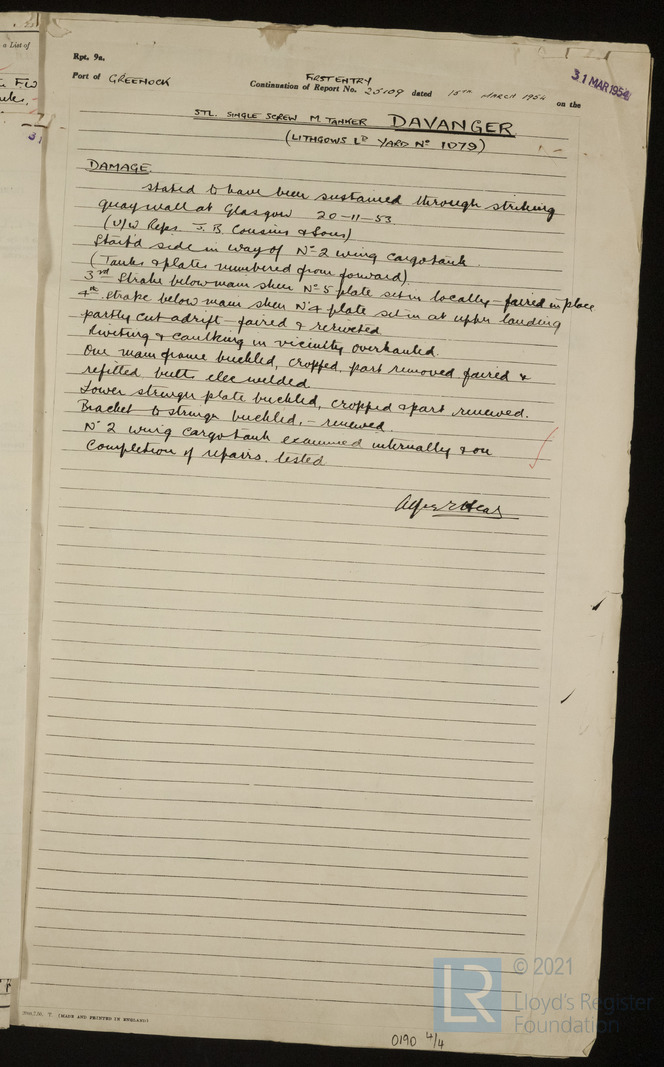 a List of
Rpt. 9a.
Port of GREENOCK
FIRST ENTRY
Continuation of Report No. 25109 dated 15TH MARCH 1954 on the
31 MAR 1954
STL. SINGLE SCREW M TANKER DAVANGER
(LITHGOWS LD YARD No 1079)
DAMAGE.
stated to have been sustained through striking
quay wall at Glasgow 20-11-53
(U/W Reps. J. B Cousins & Sons)
Starb'd side in way of No 2 wing cargo tank.
(Tanks & plates numbered from forward)
3rd Strake below main sheer No 5 plate set in locally - faired in place.
4th Strake below main sheer No 4 plate set in at upper landing
partly cut adrift - faired & reriveted
Riveting & caulking in vicinity overhauled.
One main frame buckled, cropped, part removed faired &
refitted butts elec welded
Lower stringer plate buckled, cropped & part renewed.
Bracket to stringer buckled, - renewed.
No 2 wing cargo tank examined internally & on
Completion of repairs. tested
(MADE AND PRINTED IN ENGLAND)
0190 4/4
LR
© 2021
Lloyd's Register
Foundation